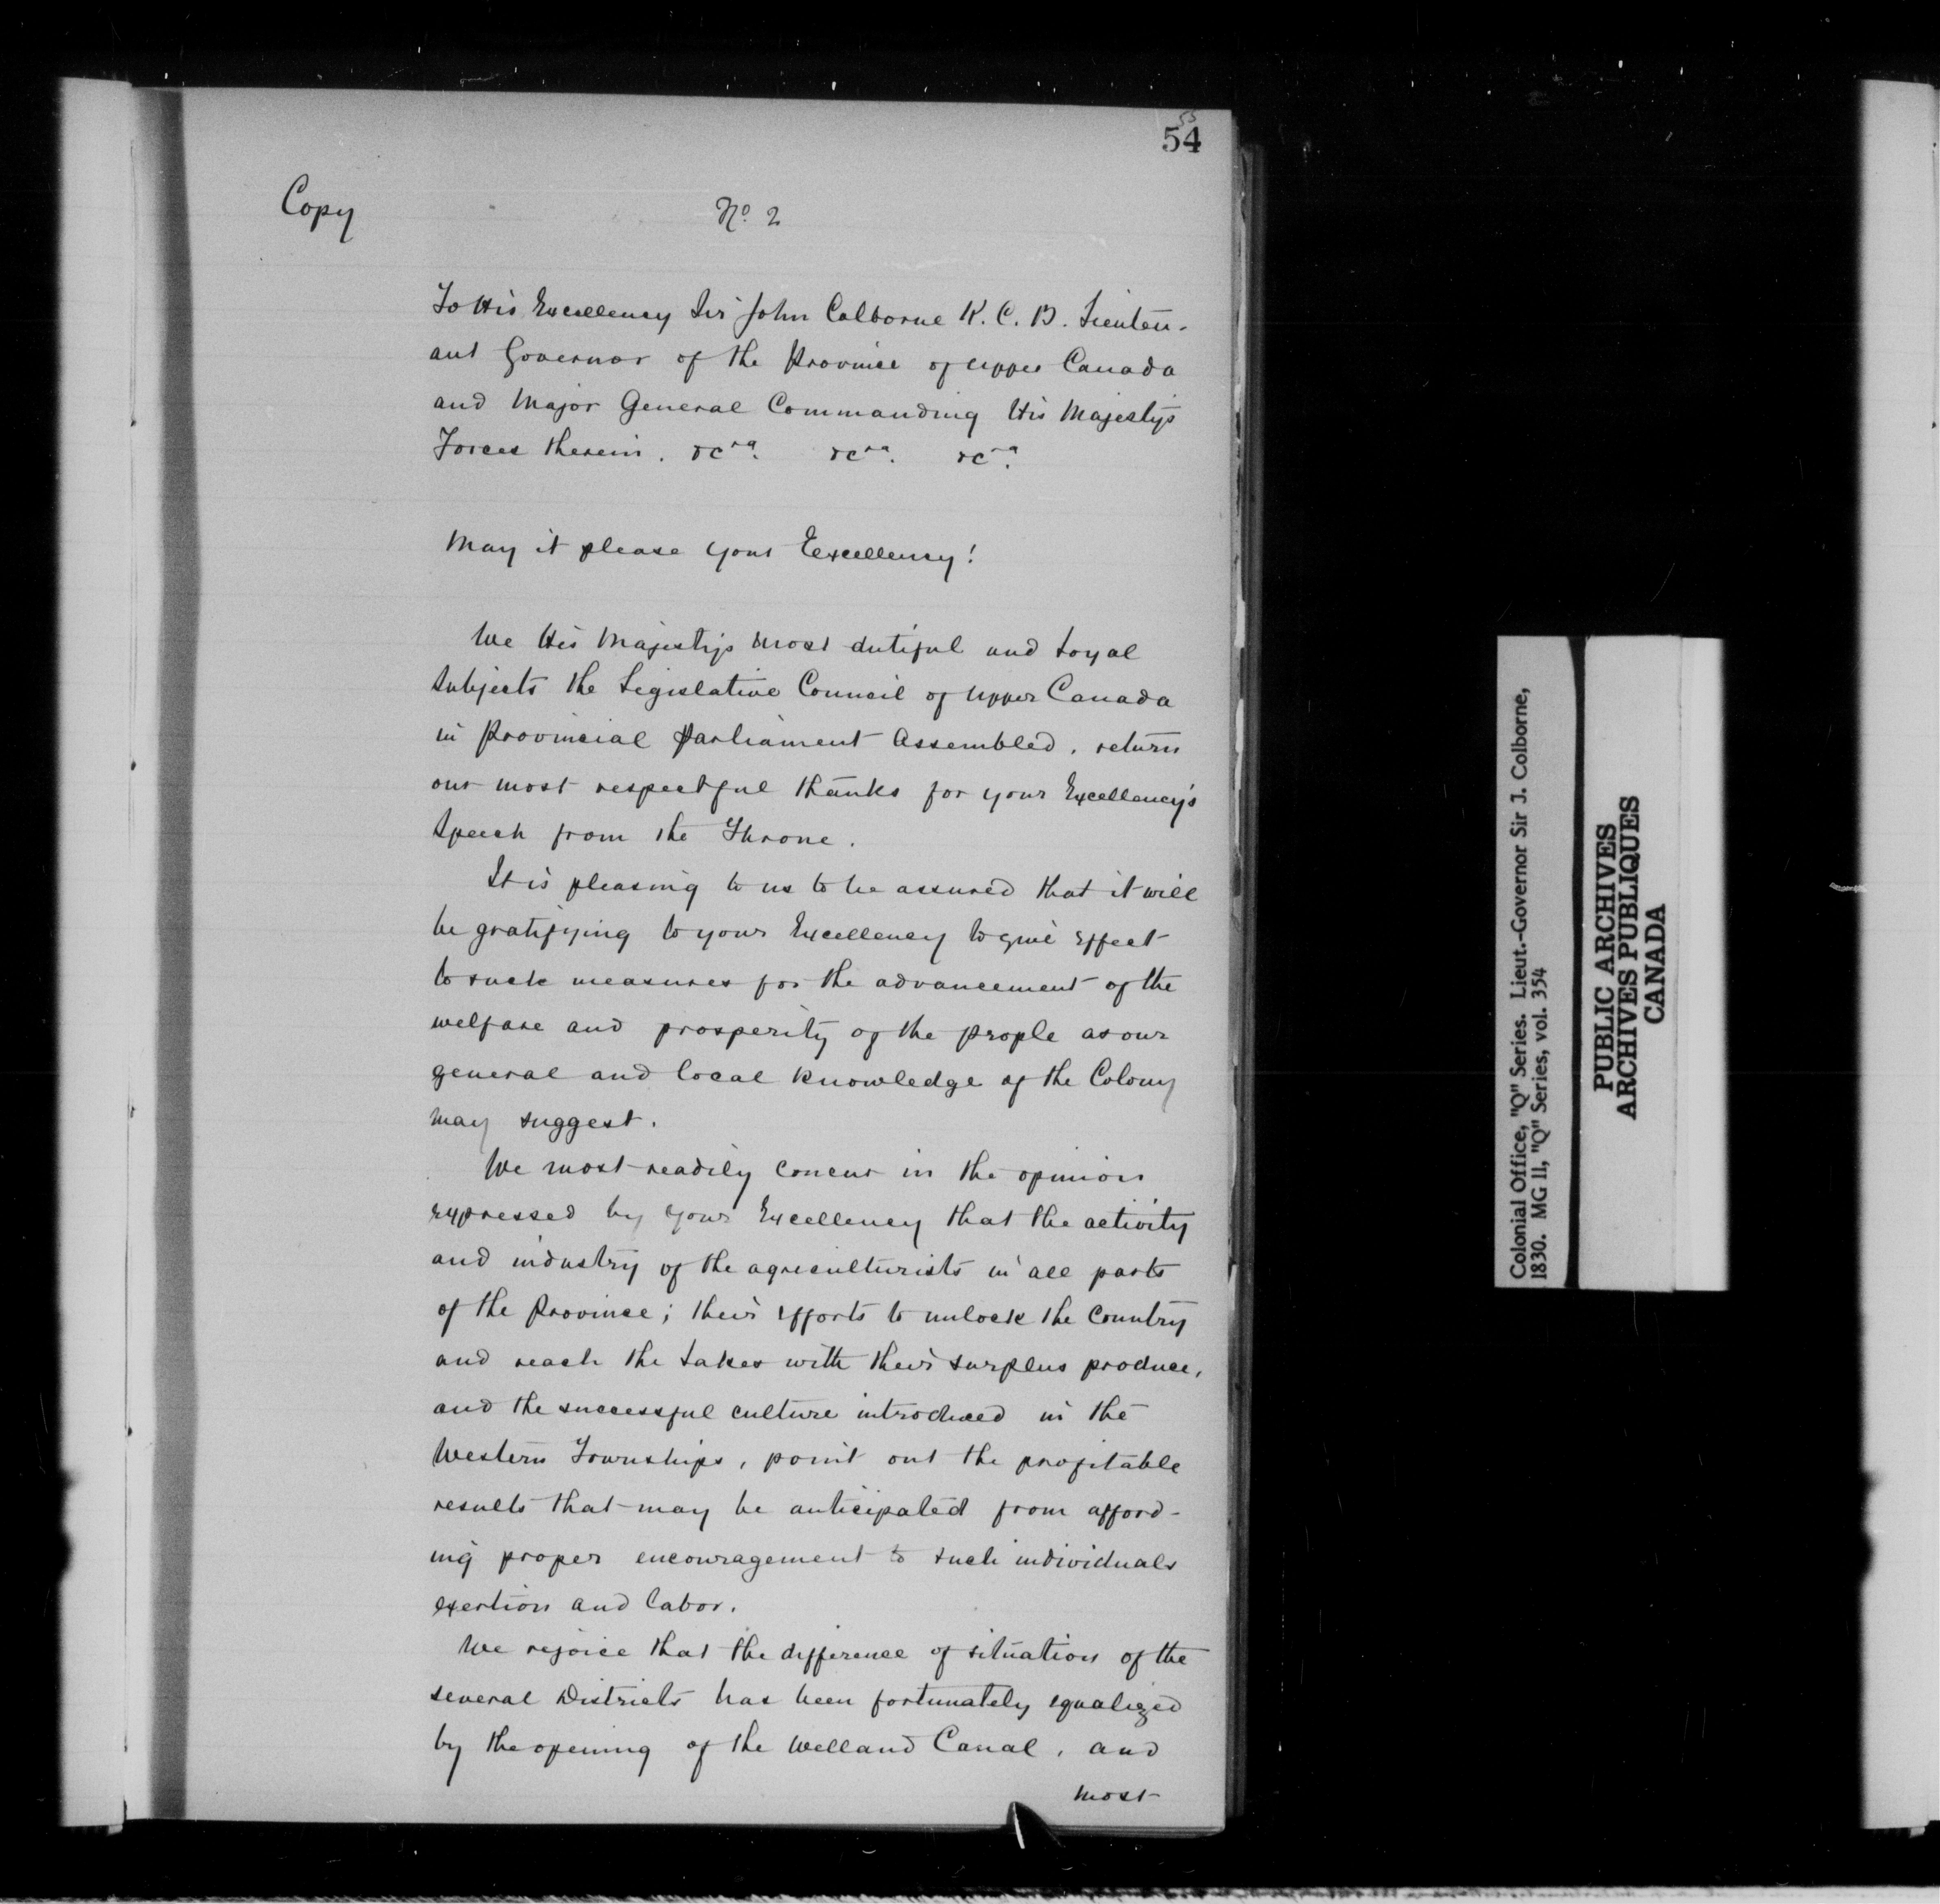 53
54
Copy
No. 2
To His Excellency Sir John Colborne K. C. B. Lieuten-
ant Governor of the Province of Upper Canada
and Major General Commanding His Majesty's
Forces therein. &cra. &cra. &cra.
May it please your Excellency!
We His Majesty's most dutiful and Loyal
Subjects the Legislative Council of Upper Canada
in Provincial Parliament Assembled, return
our most respectful thanks for your Excellency's
Speech from the Throne.
It is pleasing to us to be assured that it will
be gratifying to your Excellency to give Effect
to such measures for the advancement of the
welfare and prosperity of the people as our
general and local knowledge of the Colony
may suggest.
We most readily concur in the opinion
expressed by your Excellency that the activity
and industry of the agriculturists in all parts
of the Province; their Efforts to unlock the Country
and reach the Lakes with their surplus produce,
and the successful culture introduced in the
Western Townships, point out the profitable
results that may be anticipated from afford-
ing proper encouragement to such individuals
exertion and labor.
We rejoice that the difference of situation of the
several Districts has been fortunately equalized
by the opening of the Welland Canal, and
most
Colonial Office, "Q" Series. Lieut.-Governor Sir J. Colborne,
1830. MG 11, "Q" Series, vol. 354
PUBLIC ARCHIVES
ARCHIVES PUBLIQUES
CANADA